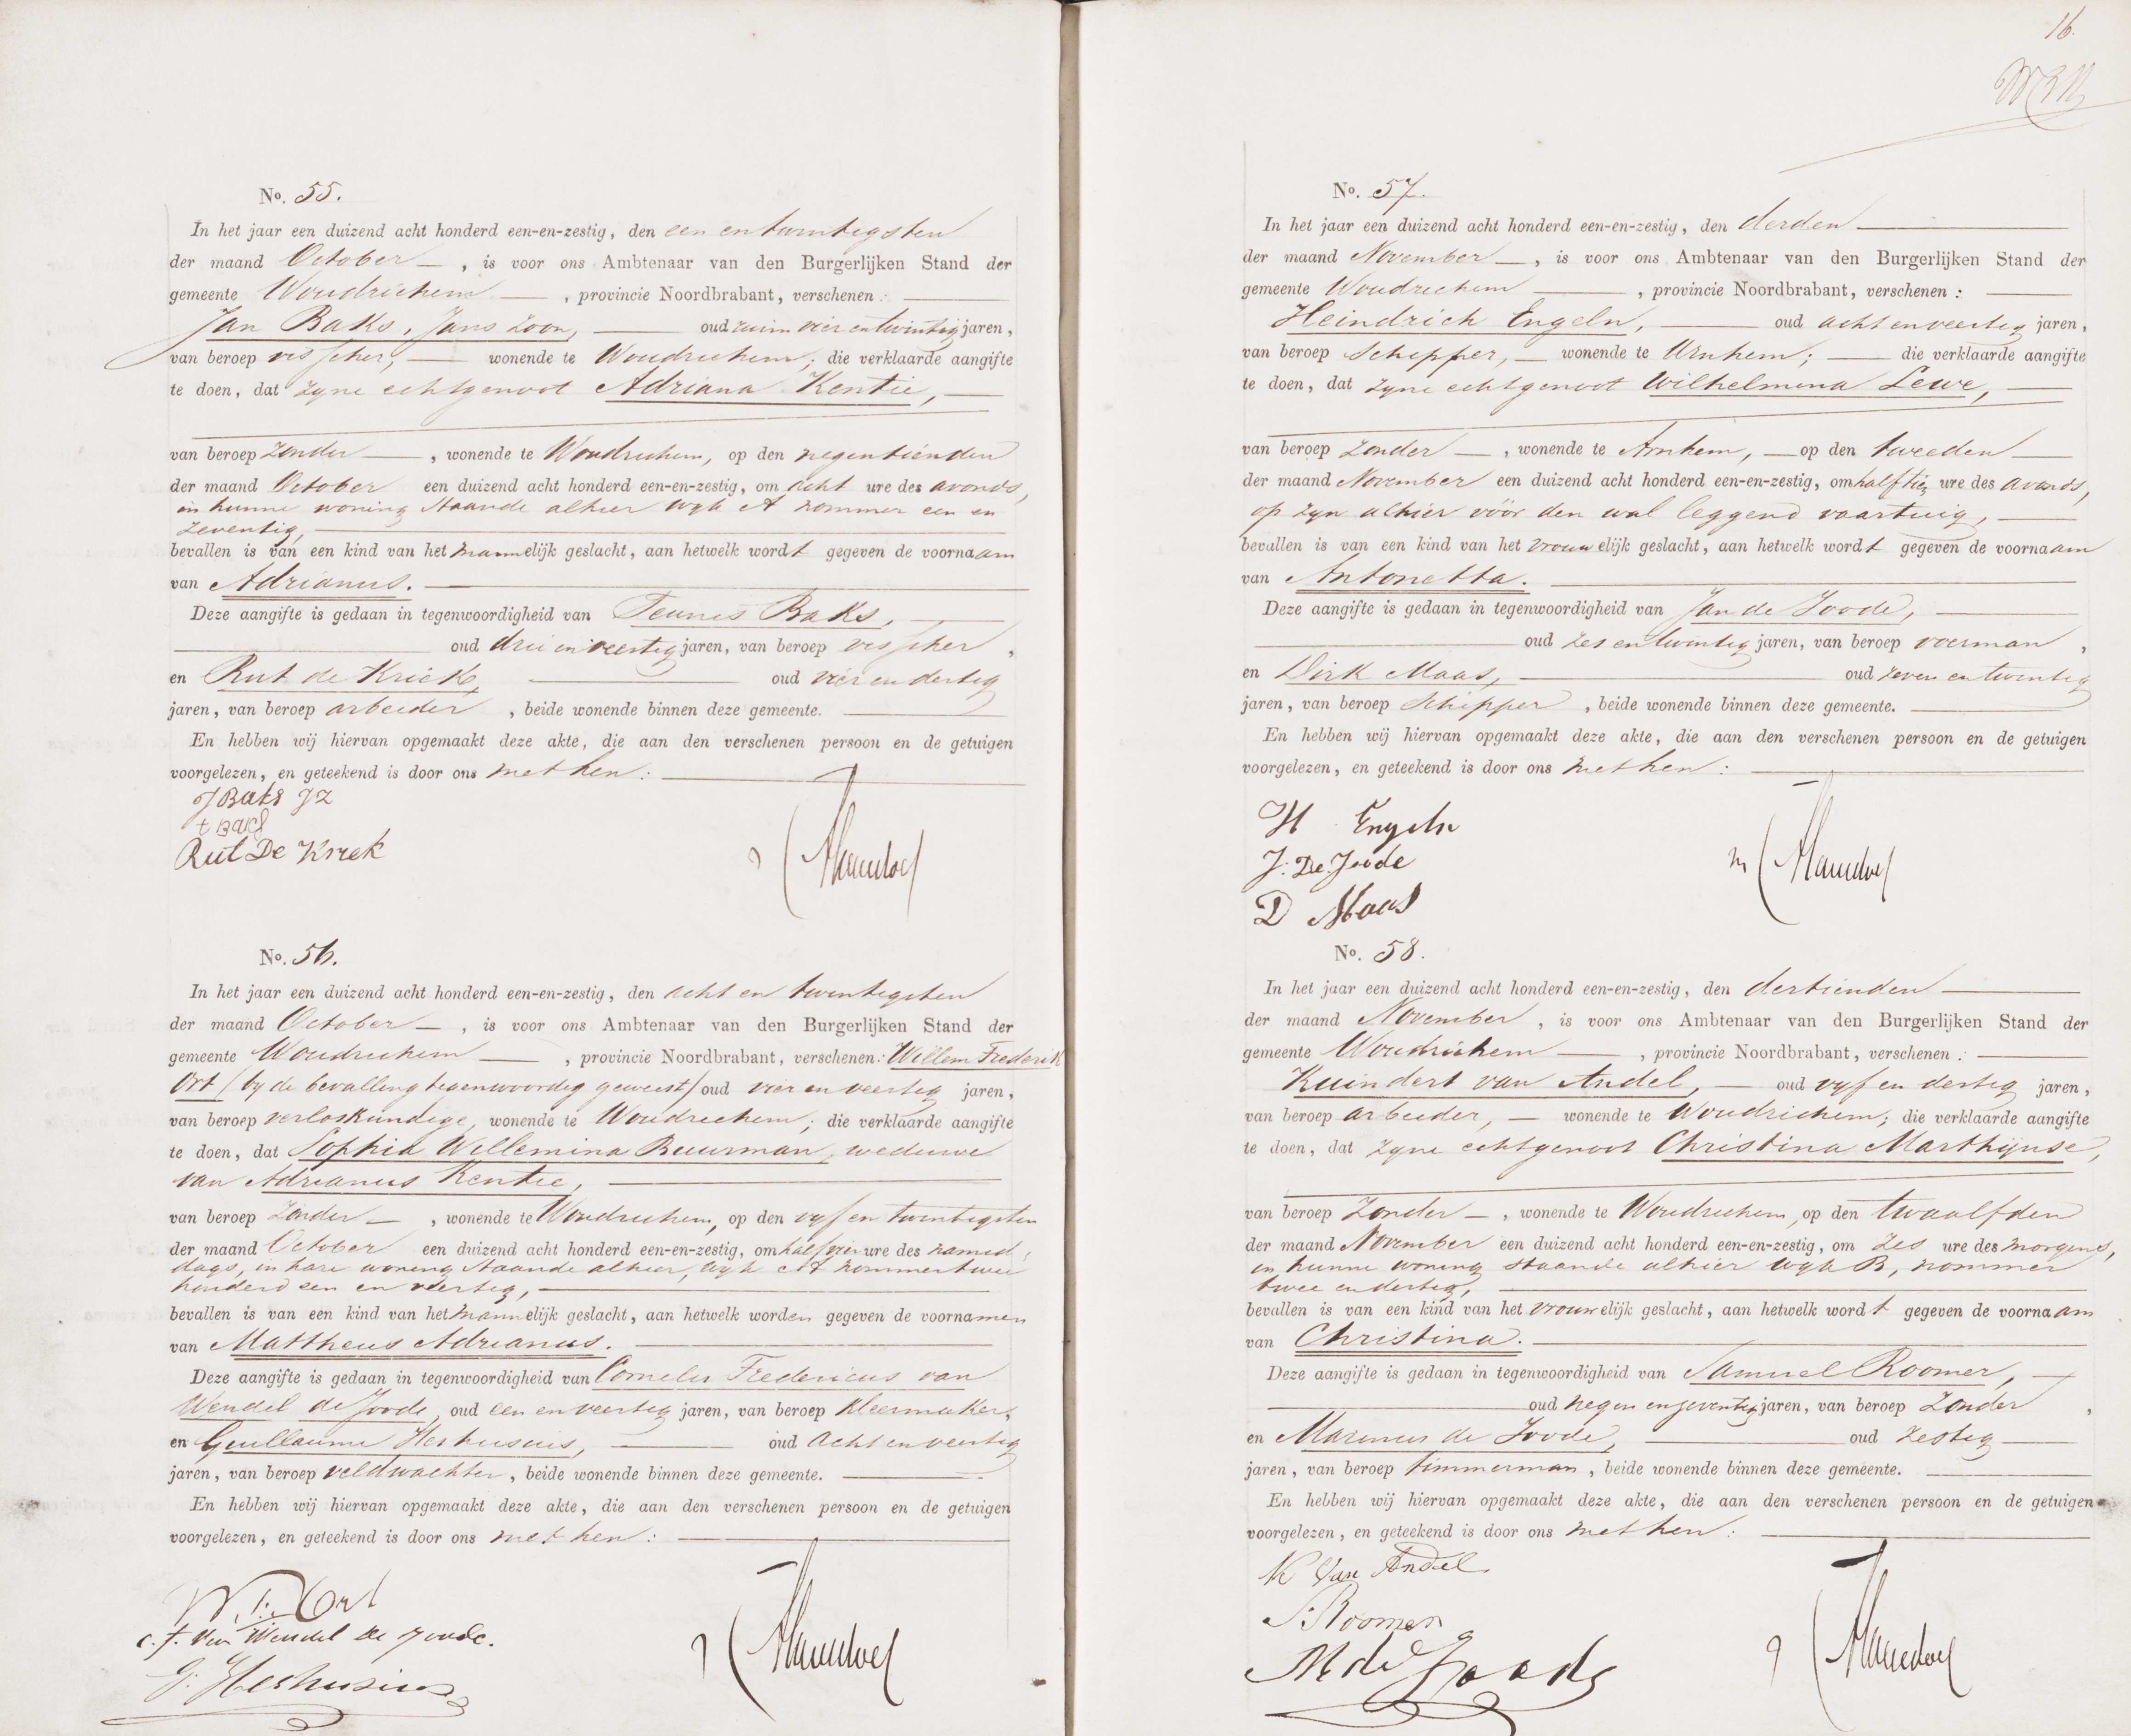 No. 55.
In het jaar een duizend acht honderd een-en-zestig, den een en twintigsten
der maand October, is voor ons Ambtenaar van den Burgerlijken Stand der
gemeente Woudrichem, provincie Noordbrabant, verschenen:
Jan Baks, Jans Zoon, oud ruim vier en twintig jaren,
van beroep visscher, wonende te Woudrichem; die verklaarde aangifte
te doen, dat zyne echtgenoot Adriana Kentie,
van beroep zonder, wonende te Woudrichem, op den negentienden
der maand October een duizend acht honderd een-en-zestig, om acht ure des avonds,
in hunne woning staande alhier wyk A nommer een en
zeventig,
bevallen is van een kind van het mannelijk geslacht, aan hetwelk wordt gegeven de voornaam
van Adrianus.
Deze aangifte is gedaan in tegenwoordigheid van Teunis Baks,
oud drie en veertig jaren, van beroep visscher,
en Rut de Kriek, oud vier en dertig
jaren, van beroep arbeider, beide wonende binnen deze gemeente.
En hebben wij hiervan opgemaakt deze akte, die aan den verschenen persoon en de getuigen
voorgelezen, en geteekend is door ons met hen:
J Baks JZ
t Baks
Rut De Kriek
No. 56.
In het jaar een duizend acht honderd een-en-zestig, den acht en twintigsten
der maand October, is voor ons Ambtenaar van den Burgerlijken Stand der
gemeente Woudrichem, provincie Noordbrabant, verschenen: Willem Frederik
Ort (by de bevalling tegenwoordig geweest) oud vier en veertig jaren,
van beroep verloskundige, wonende te Woudrichem; die verklaarde aangifte
te doen, dat Sophia Willemina Buurman, weduwe
van Adrianus Kentie,
van beroep zonder, wonende te Woudrichem, op den vyf en twintigsten
der maand October een duizend acht honderd een-en-zestig, om half vier ure des namid,
dags, in hare woning staande alhier, wyk A nommer twee
honderd een en veertig,
bevallen is van een kind van het mannelijk geslacht, aan hetwelk worden gegeven de voornamen
van Mattheus Adrianus.
Deze aangifte is gedaan in tegenwoordigheid van Cornelis Fredericus van
Wendel de Joode, oud een en veertig jaren, van beroep kleermaker,
en Guillaume Heshusius, oud acht en veertig
jaren, van beroep veldwachter, beide wonende binnen deze gemeente.
En hebben wij hiervan opgemaakt deze akte, die aan den verschenen persoon en de getuigen
voorgelezen, en geteekend is door ons met hen:
W. F. Ort
c. f. van Wendel de Joode.
G. Heshusius
16.
No. 57.
In het jaar een duizend acht honderd een-en-zestig, den derden
der maand November, is voor ons Ambtenaar van den Burgerlijken Stand der
gemeente Woudrichem, provincie Noordbrabant, verschenen:
Heindrich Engeln, oud acht en veertig jaren,
van beroep Schipper, wonende te Arnhem; die verklaarde aangifte
te doen, dat zyne echtgenoot Wilhelmina Lewe,
van beroep zonder, wonende te Arnhem, op den tweeden
der maand November een duizend acht honderd een-en-zestig, om half tien ure des avonds,
op zyn alhier vóór den wal leggend vaartuig,
bevallen is van een kind van het vrouwelijk geslacht, aan hetwelk wordt gegeven de voornaam
van Antonetta.
Deze aangifte is gedaan in tegenwoordigheid van Jan de Joode,
oud zes en twintig jaren, van beroep voerman,
en Dirk Maas, oud zeven en twintig
jaren, van beroep Schipper, beide wonende binnen deze gemeente.
En hebben wij hiervan opgemaakt deze akte, die aan den verschenen persoon en de getuigen
voorgelezen, en geteekend is door ons met hen:
H Engeln
J. De Joode
D Maas
No. 58.
In het jaar een duizend acht honderd een-en-zestig, den dertienden
der maand November, is voor ons Ambtenaar van den Burgerlijken Stand der
gemeente Woudrichem, provincie Noordbrabant, verschenen:
Kuindert van Andel, oud vyf en dertig jaren,
van beroep arbeider, wonende te Woudrichem; die verklaarde aangifte
te doen, dat zyne echtgenoot Christina Marthijnse,
van beroep zonder, wonende te Woudrichem, op den twaalfden
der maand November een duizend acht honderd een-en-zestig, om zes ure des morgens,
in hunne woning staande alhier wyk B, nommer
twee en dertig,
bevallen is van een kind van het vrouwelijk geslacht, aan hetwelk wordt gegeven de voornaam
van Christina.
Deze aangifte is gedaan in tegenwoordigheid van Samuel Roomer,
oud negen en zeventig jaren, van beroep zonder,
en Marinus de Joode, oud zestig
jaren, van beroep timmerman, beide wonende binnen deze gemeente.
En hebben wij hiervan opgemaakt deze akte, die aan den verschenen persoon en de getuigen
voorgelezen, en geteekend is door ons met hen:
K van Andel
S: Roomer
M de Joode